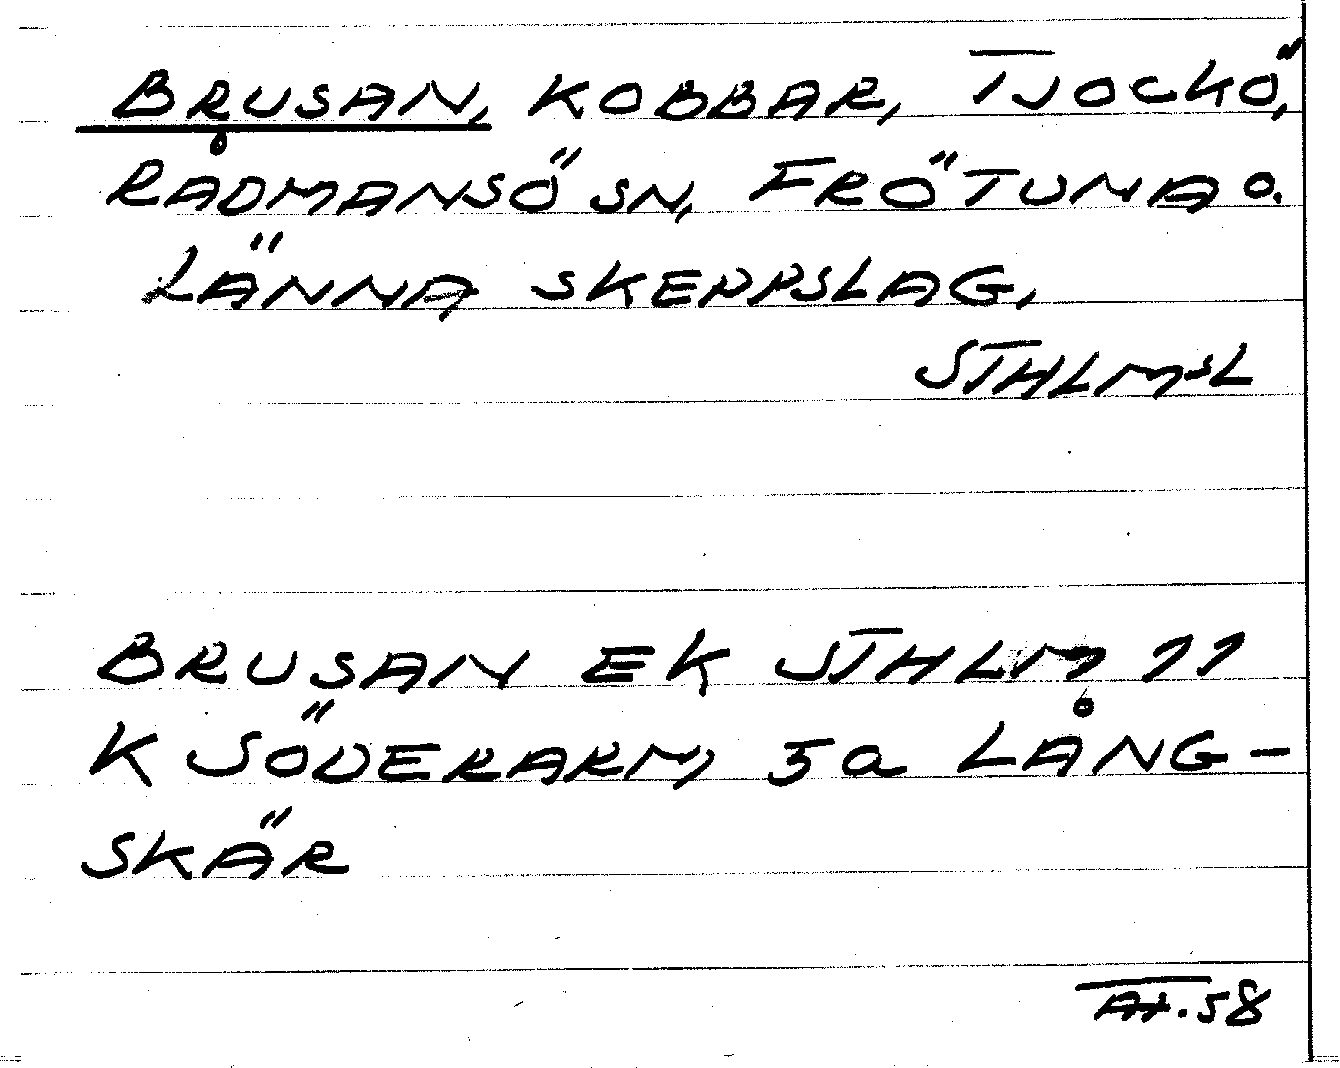 BRUSAN, KOBBAR, TJOCKÖ,
RÅDMANSÖ SN, FRÖTUNA O.
LÄNNA SKEPPSLAG,
STHLMSL
BRUSAN EK STHLM 11
K SÖDERARM, 5a LÅNG-
SKÄR